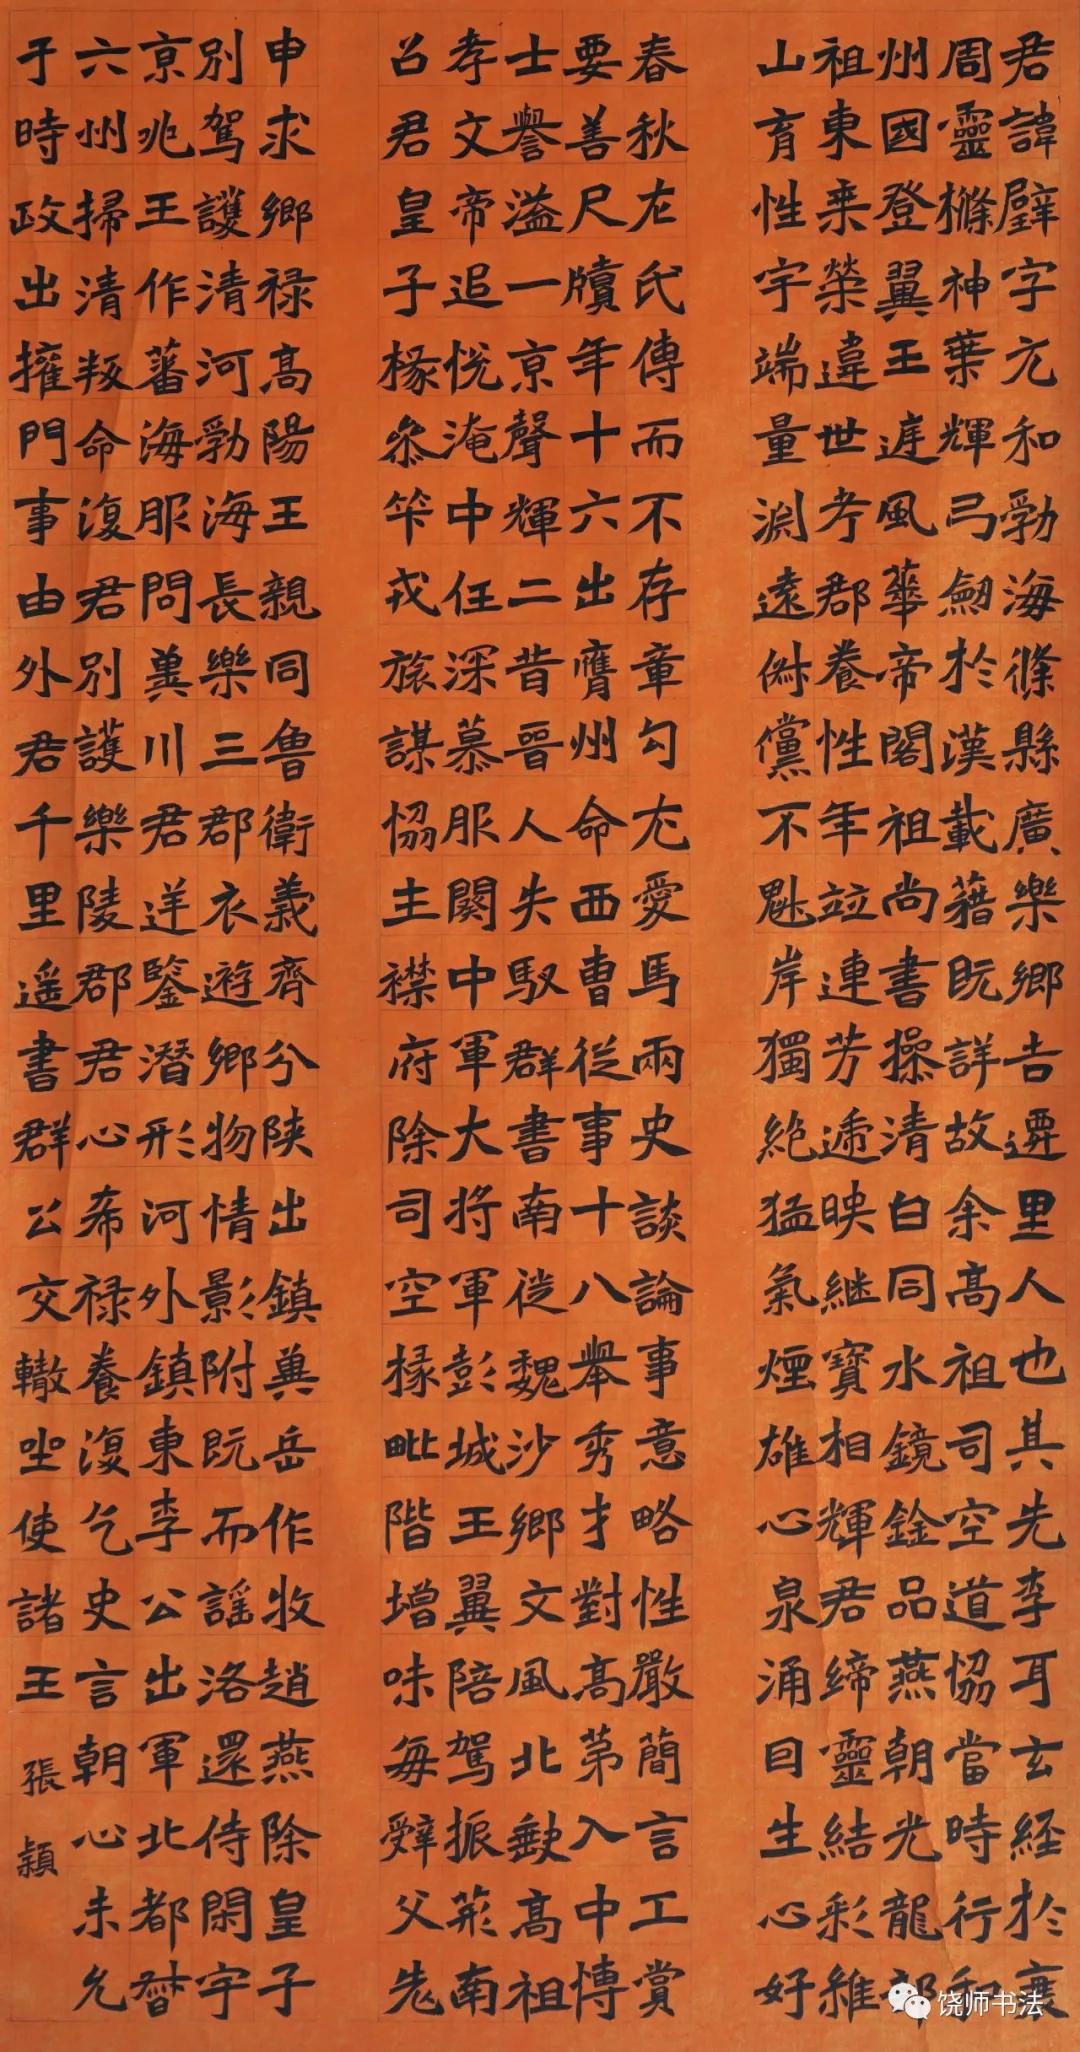 君諱璧字元和勃海條縣廣樂鄉吉遷里人也其先李耳玄經於衰
周靈樤神葉輝弓劒於漢載藉既詳故余高祖司空道協當時行和
州國登翼王遅風華帝閣祖尚書操清白同水鏡鉴品燕朝光龍部
祖東莱榮違世考郡養性年竝連芳遞映継寶相輝君締靈結彩維
山育性宇端量淵遠倜儻不魁岸獨絶猛氣煙雄心泉涌曰生心好
春秋左氏傳而不存章勾尤愛馬兩史談論事意略性嚴簡言工賞
要善尺牘年十六出膺州命西曹從事十八舉秀才對高第入中博
士譽溢一京聲輝二昔晉人失馭群書南徙魏沙鄉文風北缺高祖
孝文帝追悦淹中任深慕服闕中軍大将軍彭城王翼陪駕振荊南
召君皇子椽叅笇戎旅謀協主襟府除司空椽毗階增味每辤父老
申求鄉禄高陽王親同魯衛義齊分陕出鎮冀岳作牧趙燕除皇子
別駕護清河勃海長樂三郡衣遊鄉物情影附既而謡洛還侍閑宇
京兆王作蕃海服問冀川君逆鑒潜形河外鎮東李公出軍北都督
六州掃清叛命復君別護樂陵郡君心希禄養復乞史言朝心未允
于時政出擁門事由外君千里遥書群公交轍坐使諸王
張穎
饶师书法